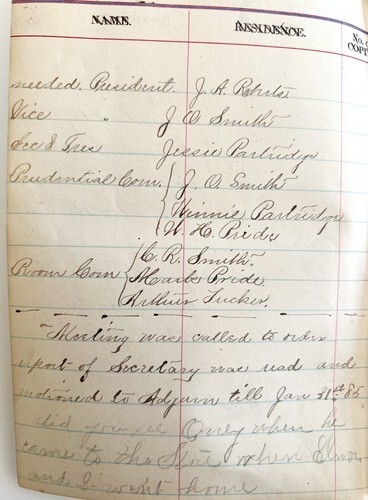 NAME. RESIDENCE. No. COPI
needed. President. J. A. Roberts
Vice " J O Smith
Sec & Tres Jessie Partridge
Prudential Com. J. O. Smith
Winnie Partridge
W. H. Pride
C. R. Smith.
Room Com Mark Pride.
Arthur Tucker.
Meeting was called to order
report of Secretary was read and
motioned to Adjurn till Jan 31st 85
did you see Oney when he
came to the Store when Elmer
and I went home